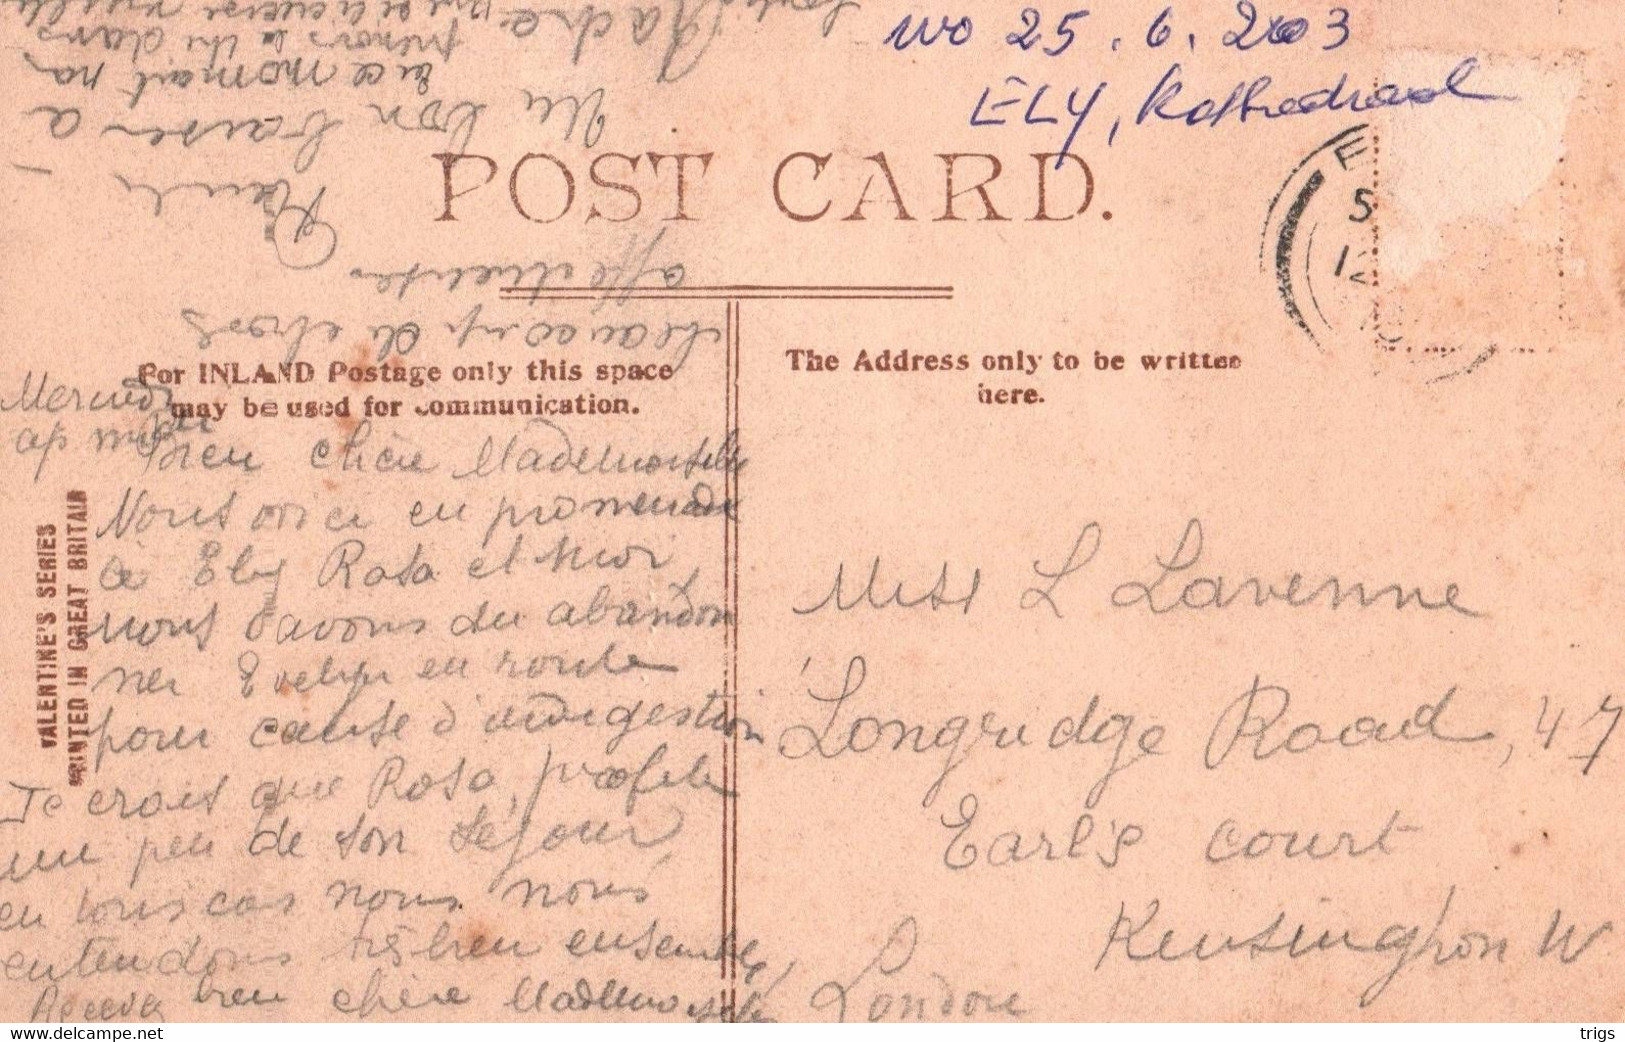 wo 25.6.2003
ELY, Kathedraal
POST CARD.
For INLAND Postage only this space
may be used for communication.
The Address only to be written
here.
VALENTINE'S SERIES
PRINTED IN GREAT BRITAIN
Mercredi
ap midi
Bien chère Mademoiselle
Nous voici en promenade
à Ely Rosa et moi,
nous avons du abandon
ner Evelyn en route
pour cause d'indigestion
Je crois que Rosa, profite
un peu de son séjour,
en tous cas nous nous
entendons très bien ensemble,
Recevez bien chère Mademoiselle
beaucoup de choses
affectueuses
Un bon baiser a
en ce moment
Miss L Lavenne
Longridge Road, 47
Earl's Court
Kensington W
London
delcampe.net
trigs